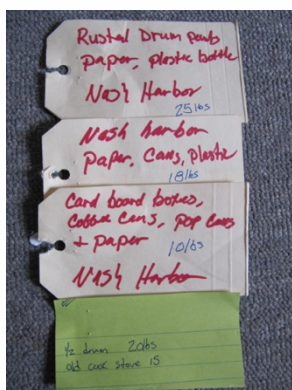 Rusted Drum parts
paper, plastic bottle
Nash Harbor
25lbs
Nash harbor
paper, Cans, plastic
18lbs
Card board boxes,
Coffee cans, pop cans
+ paper
10lbs
Nash Harbor
1/2 drum 20lbs
old cook stove 15